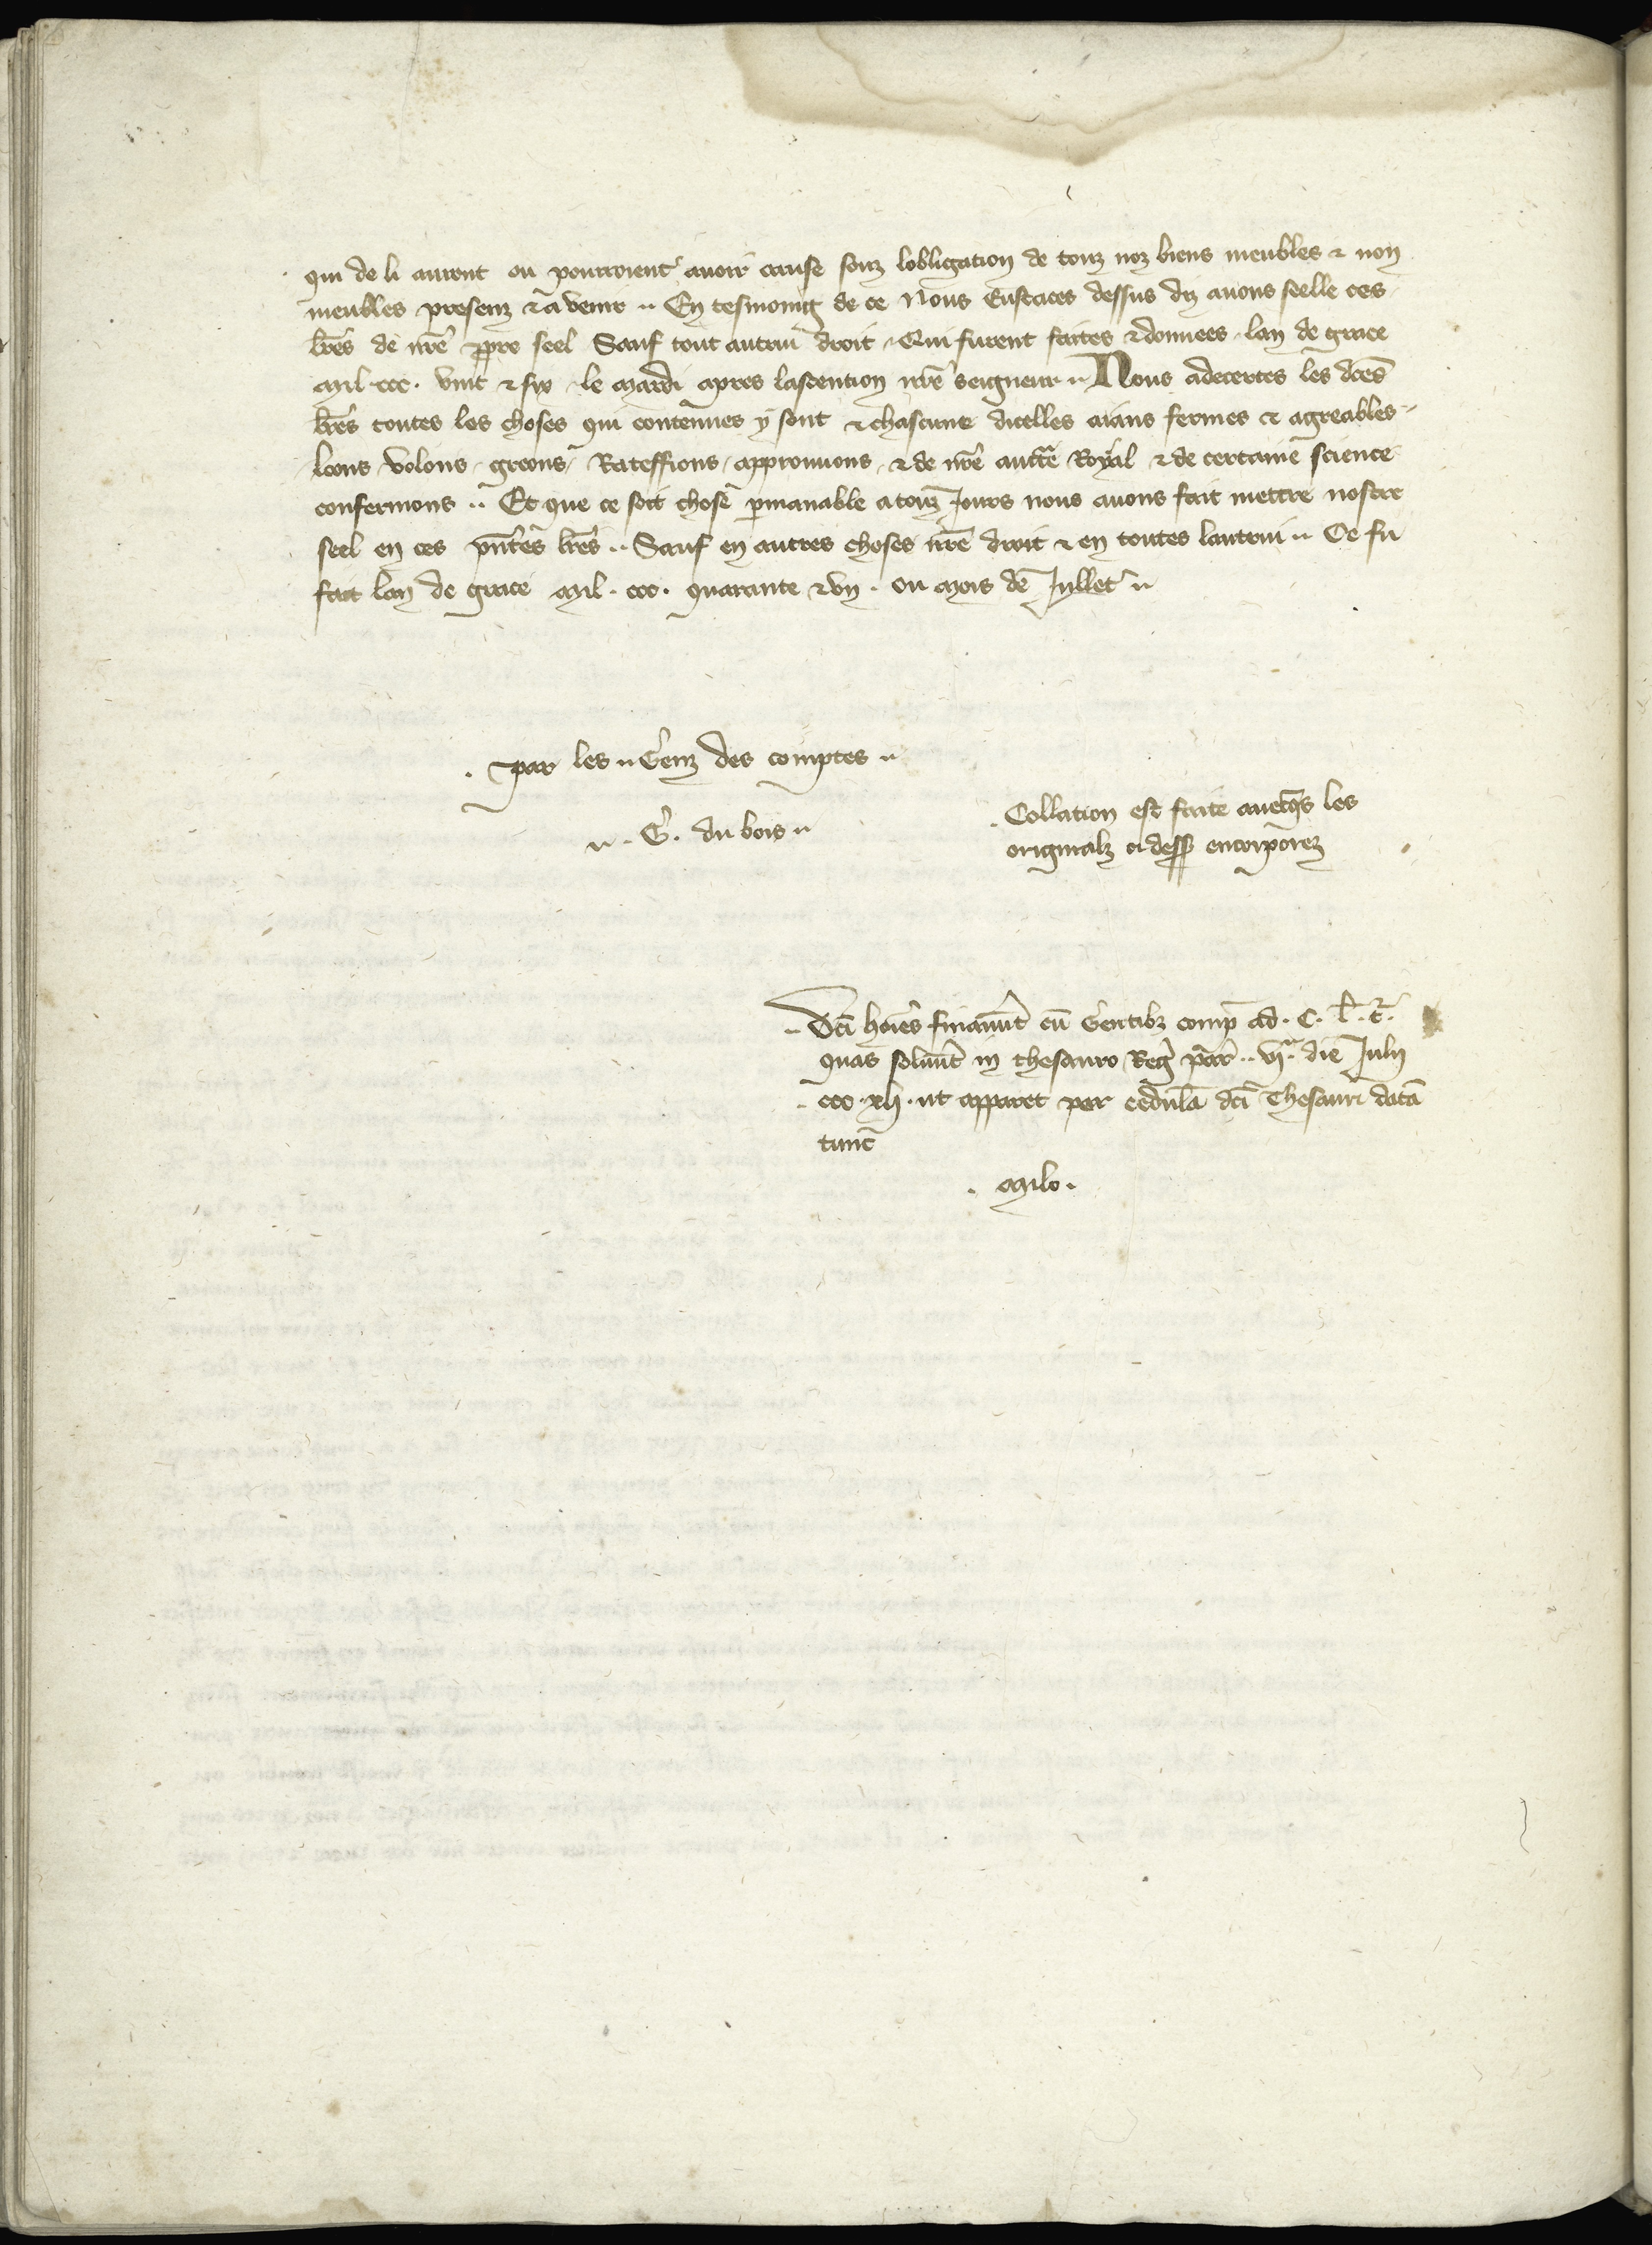 qui de li auront ou pourroient avoir cause souz lobligation de touz noz biens meubles & non
meubles presenz & a venir .. En tesmoing de ce Nous Eustaces dessus diz avons seelle ces
lr̃es de nr̃e ꝓpre seel Sauf tout autrui droit . Qui furent faites & donnees . lan de grace
mil . ccc . vint & six . le mardi apres lascention nr̃e seigneur .. Nous adecertes les dc̃es
lr̃es toutes les choses qui contenues y sont & chascune dicelles aians fermes & agreables
loons . volons . greons . Rateffions . approuvons . & de nr̃e auct̃e Royal & de certaine science
confermons .. Et que ce soit chose ꝑmanable a touz jours nous avons fait mettre nostre
seel en ces pñtes lr̃es .. Sauf en autres choses nr̃e droit & en toutes lautrui .. Ce fu
fait lan de grace mil . ccc . quarante & un . ou mois de Jullet ..
. par les .. Genz des comptes ..
.. . G . du bois ..
. Collation est faite avecq̃s les
originalz ci dess encorporez
.. Dc̃i hoĩes finaverũt cũ Gentibz comp̃ ad . C . l̃ . t̃ .
quas solverũt in thesauro Reg̃ par̃ .. vj.ᵃ die Julij
. ccc . xlj . ut apparet per cedulã dc̃i Thesauri datã
tunc̃
. Milo .